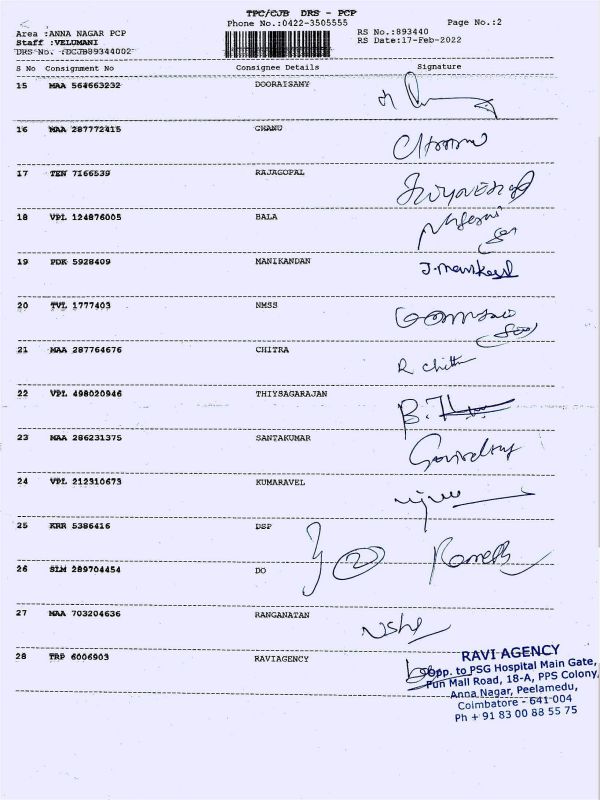 TPC/CJB DRS - PCP
Phone No.:0422-3505555
Page No.:2
Area :ANNA NAGAR PCP
Staff :VELUMANI
DRS No. :DCJB89344002
RS No.:893440
RS Date:17-Feb-2022
S No Consignment No Consignee Details Signature
15 MAA 564663232 DOORAISAMY
16 MAA 287772415 CHANU
17 TEN 7166539 RAJAGOPAL
18 VPL 124876005 BALA
19 PDK 5928409 MANIKANDAN
20 TVL 1777403 NMSS
21 MAA 287764676 CHITRA R chitra
22 VPL 498020946 THIYSAGARAJAN
23 MAA 286231375 SANTAKUMAR
24 VPL 212310673 KUMARAVEL
25 KRR 5386416 DSP
26 SLM 289704454 DO
27 MAA 703204636 RANGANATAN
28 TRP 6006903 RAVIAGENCY
RAVI AGENCY
Opp. to PSG Hospital Main Gate,
Fun Mall Road, 18-A, PPS Colony,
Anna Nagar, Peelamedu,
Coimbatore - 641 004
Ph + 91 83 00 88 55 75